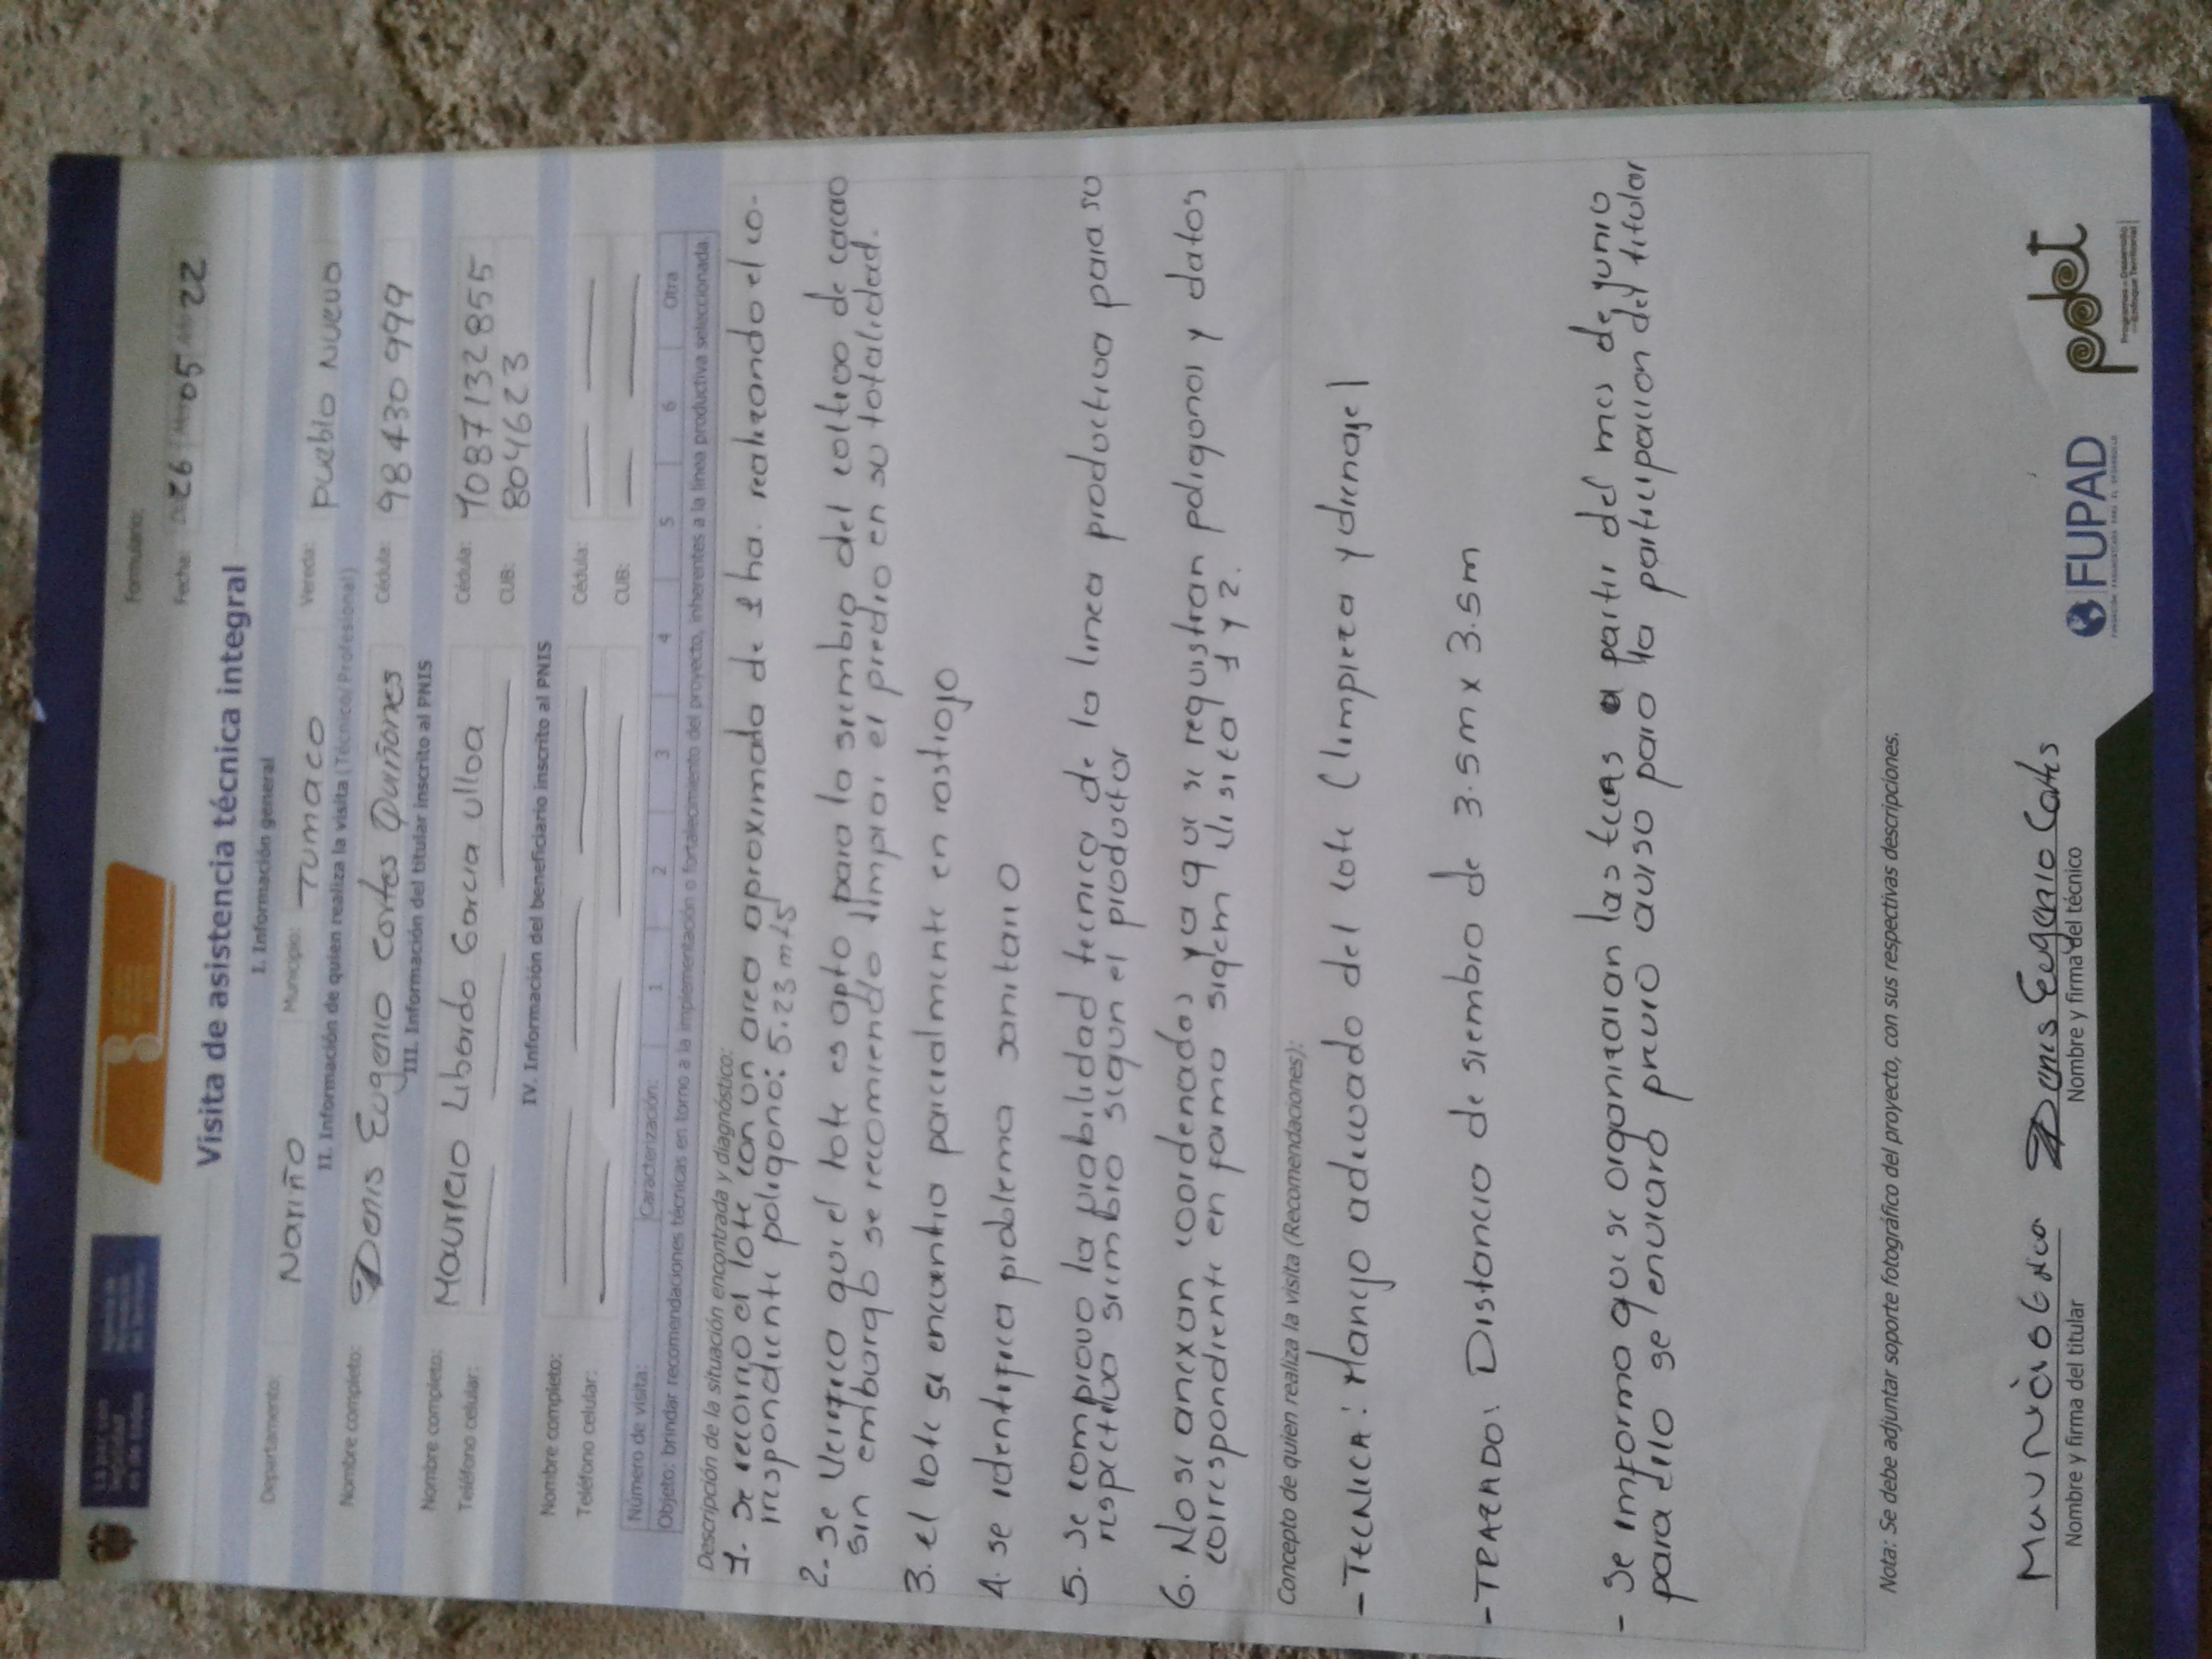 Formulario:
Fecha: 26 05 22
Visita de asistencia técnica integral
I. Información general
Departamento: Nariño Municipio: Tumaco Vereda: Pueblo Nuevo
II. Información de quien realiza la visita (Técnico/Profesional)
Nombre completo: Denis Eugenio Cortes Quiñones Cédula: 98430999
III. Información del titular inscrito al PNIS
Nombre completo: Mauricio Libardo Garcia Ulloa Cédula: 1087132855
Teléfono celular: CUB: 804623
IV. Información del beneficiario inscrito al PNIS
Nombre completo: Cédula:
Teléfono celular: CUB:
Número de visita: Caracterización: 1 2 3 4 5 6 Otra
Objeto: brindar recomendaciones técnicas en torno a la implementación o fortalecimiento del proyecto, inherentes a la línea productiva seleccionada.
Descripción de la situación encontrada y diagnóstico:
1- Se recorrio el lote con un area aproximada de 1 ha. realizando el co-
rrespondiente poligono: 5.23 mts
2- Se Verifico que el lote es apto para la siembra del cultivo de cacao
sin embargo se recomiendo limpiar el predio en su totalidad.
3. el lote se encuentra parcialmente en rastrojo
4. se identifica problema sanitario
5. Se comprovo la viabilidad tecnica de la linea productiva para su
respectiva siembra segun el productor
6. No se anexan coordenadas ya que se requistran poligonos y datos
correspondiente en forma siqem visita 1 y 2.
Concepto de quien realiza la visita (Recomendaciones):
- TECNICA: Manejo adecuado del lote (limpieza y drenaje)
- TRAZADO: Distancia de siembra de 3.5m x 3.5m
- Se informa que se organizaran las tecas a partir del mes de junio
para ello se enviara previo aviso para la participacion del titular
Nota: Se debe adjuntar soporte fotográfico del proyecto, con sus respectivas descripciones.
Mauricio Denis Eugenio Cortes
Nombre y firma del titular Nombre y firma del técnico
FUPAD
pdet
Programas de Desarrollo
con Enfoque Territorial